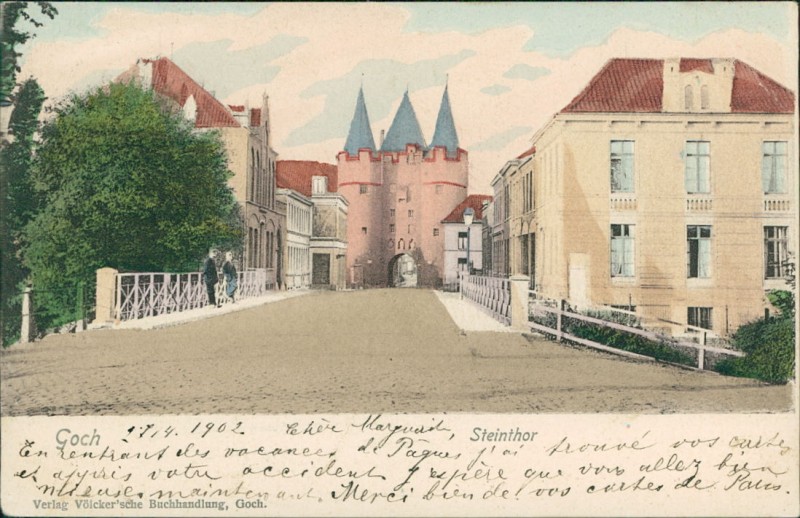 Goch 17/4. 1902 Chère Marguerite, Steinthor
En rentrant des vacances de Pâques j'ai trouvé vos cartes
et appris votre accident j'espère que vous allez bien
mieuse maintenant. Merci bien de vos cartes de Paris.
Verlag Völcker'sche Buchhandlung, Goch.